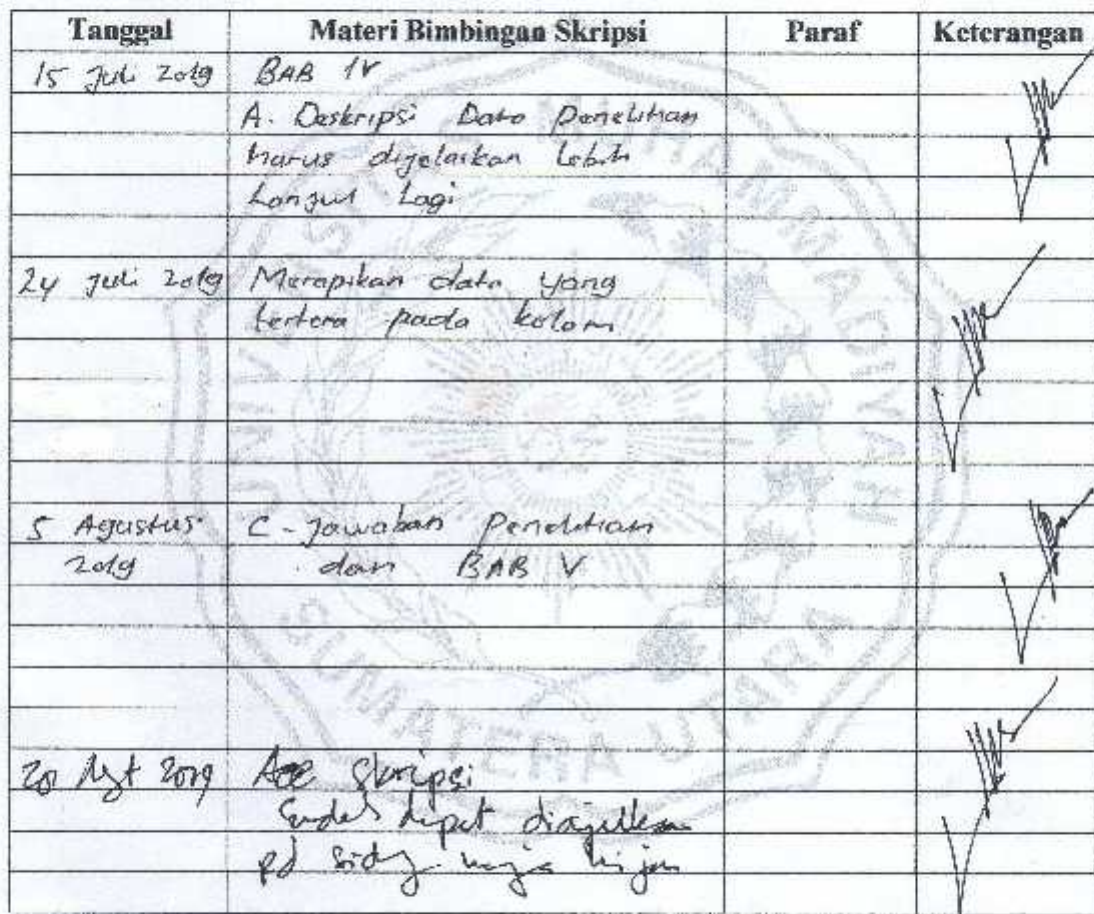 Tanggal Materi Bimbingan Skripsi Paraf Keterangan
15 Juli 2019 BAB IV
A. Deskripsi Data Penelitian
harus dijelaskan Lebih
Lanjut Lagi
24 Juli 2019 Merapikan data yang
tertera pada kolom
5 Agustus C. Jawaban Penelitian
2019 dan BAB V
20 Agt 2019 Acc Skripsi
Sudah dapat diajukan
pd sidang meja hijau
UNIVERSITAS MUHAMMADIYAH
SUMATERA UTARA